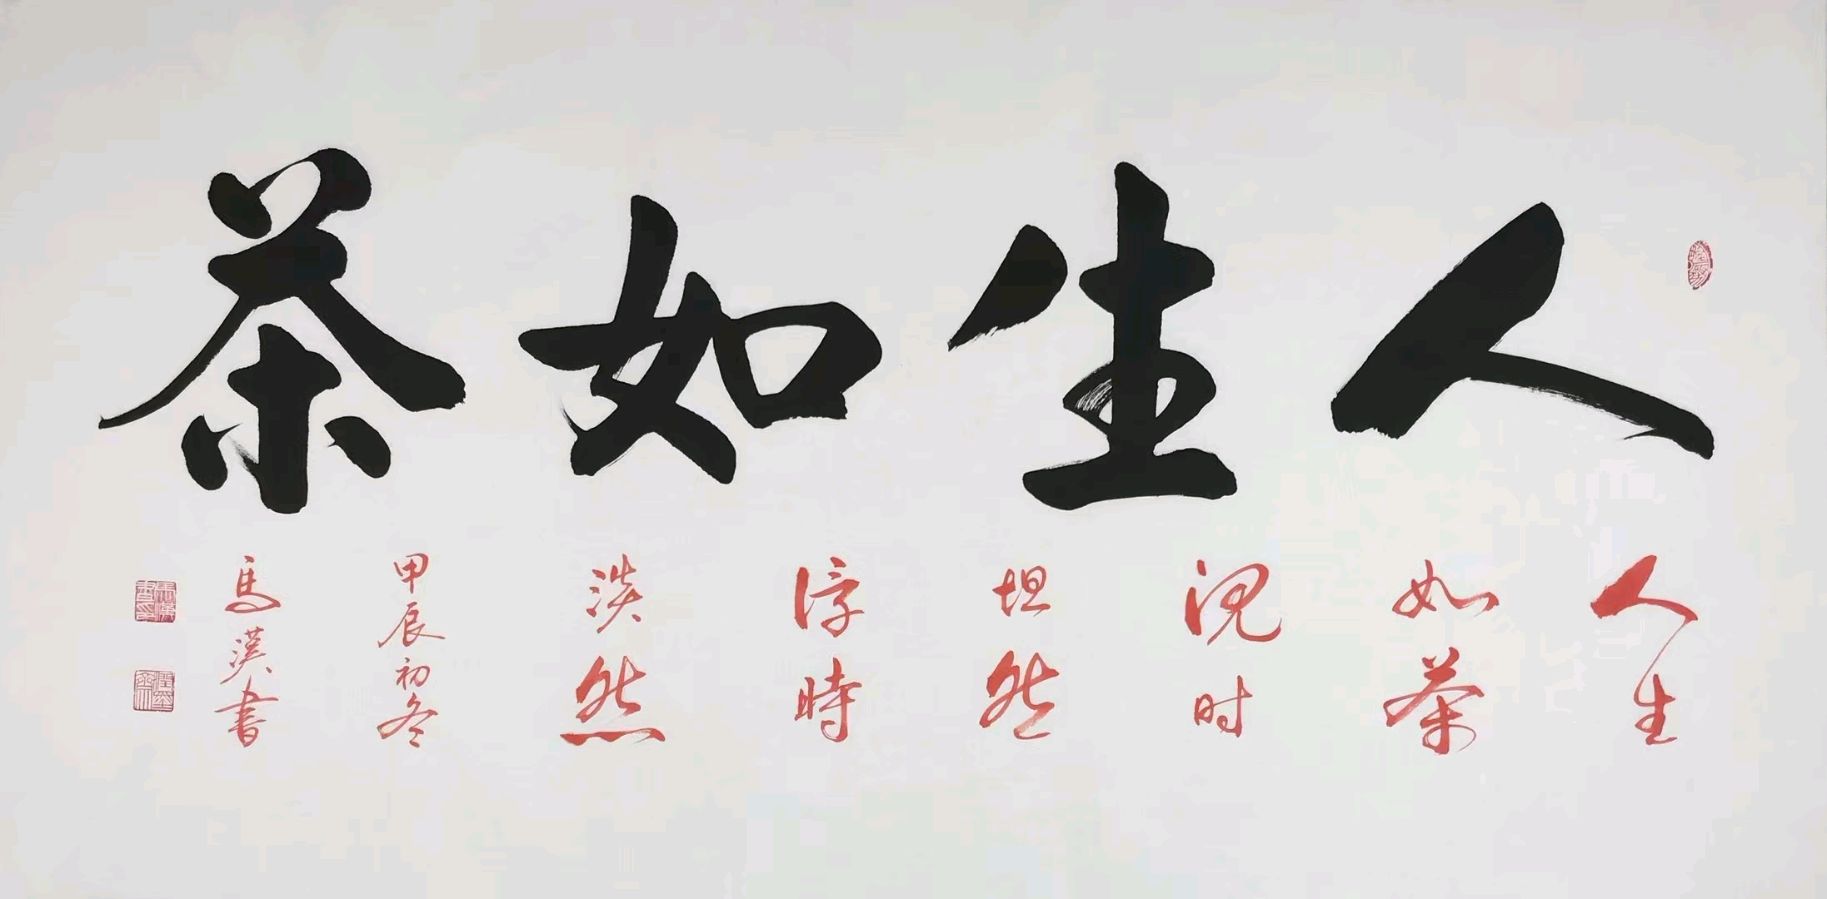 人生如茶
人生
如茶
沉时
坦然
浮時
淡然
甲辰初冬
馬漢書